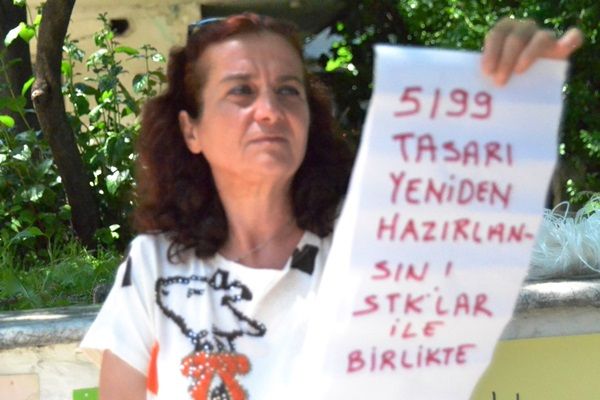 5199
TASARI
YENİDEN
HAZIRLAN-
SIN!
STK'LAR
İLE
BİRLİKTE